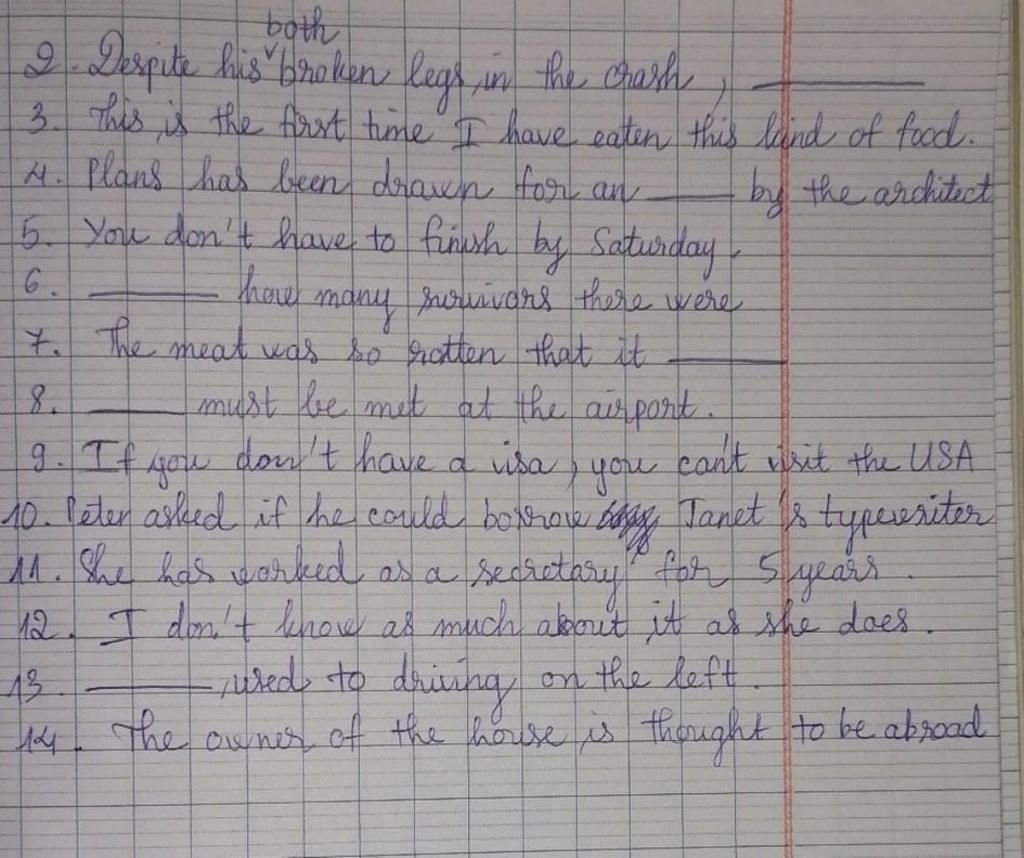 both
2. Despite his broken legs in the crash, ______
3. This is the first time I have eaten this kind of food.
4. Plans has been drawn for an ______ by the architect
5. You don't have to finish by Saturday.
6. ______ how many survivors there were
7. The meat was so rotten that it ______
8. ______ must be met at the airport.
9. If you don't have a visa, you can't visit the USA
10. Peter asked if he could borrow Janet's typewriter
11. She has worked as a secretary for 5 years.
12. I don't know as much about it as she does.
13. ______ used to driving on the left.
14. The owner of the house is thought to be abroad